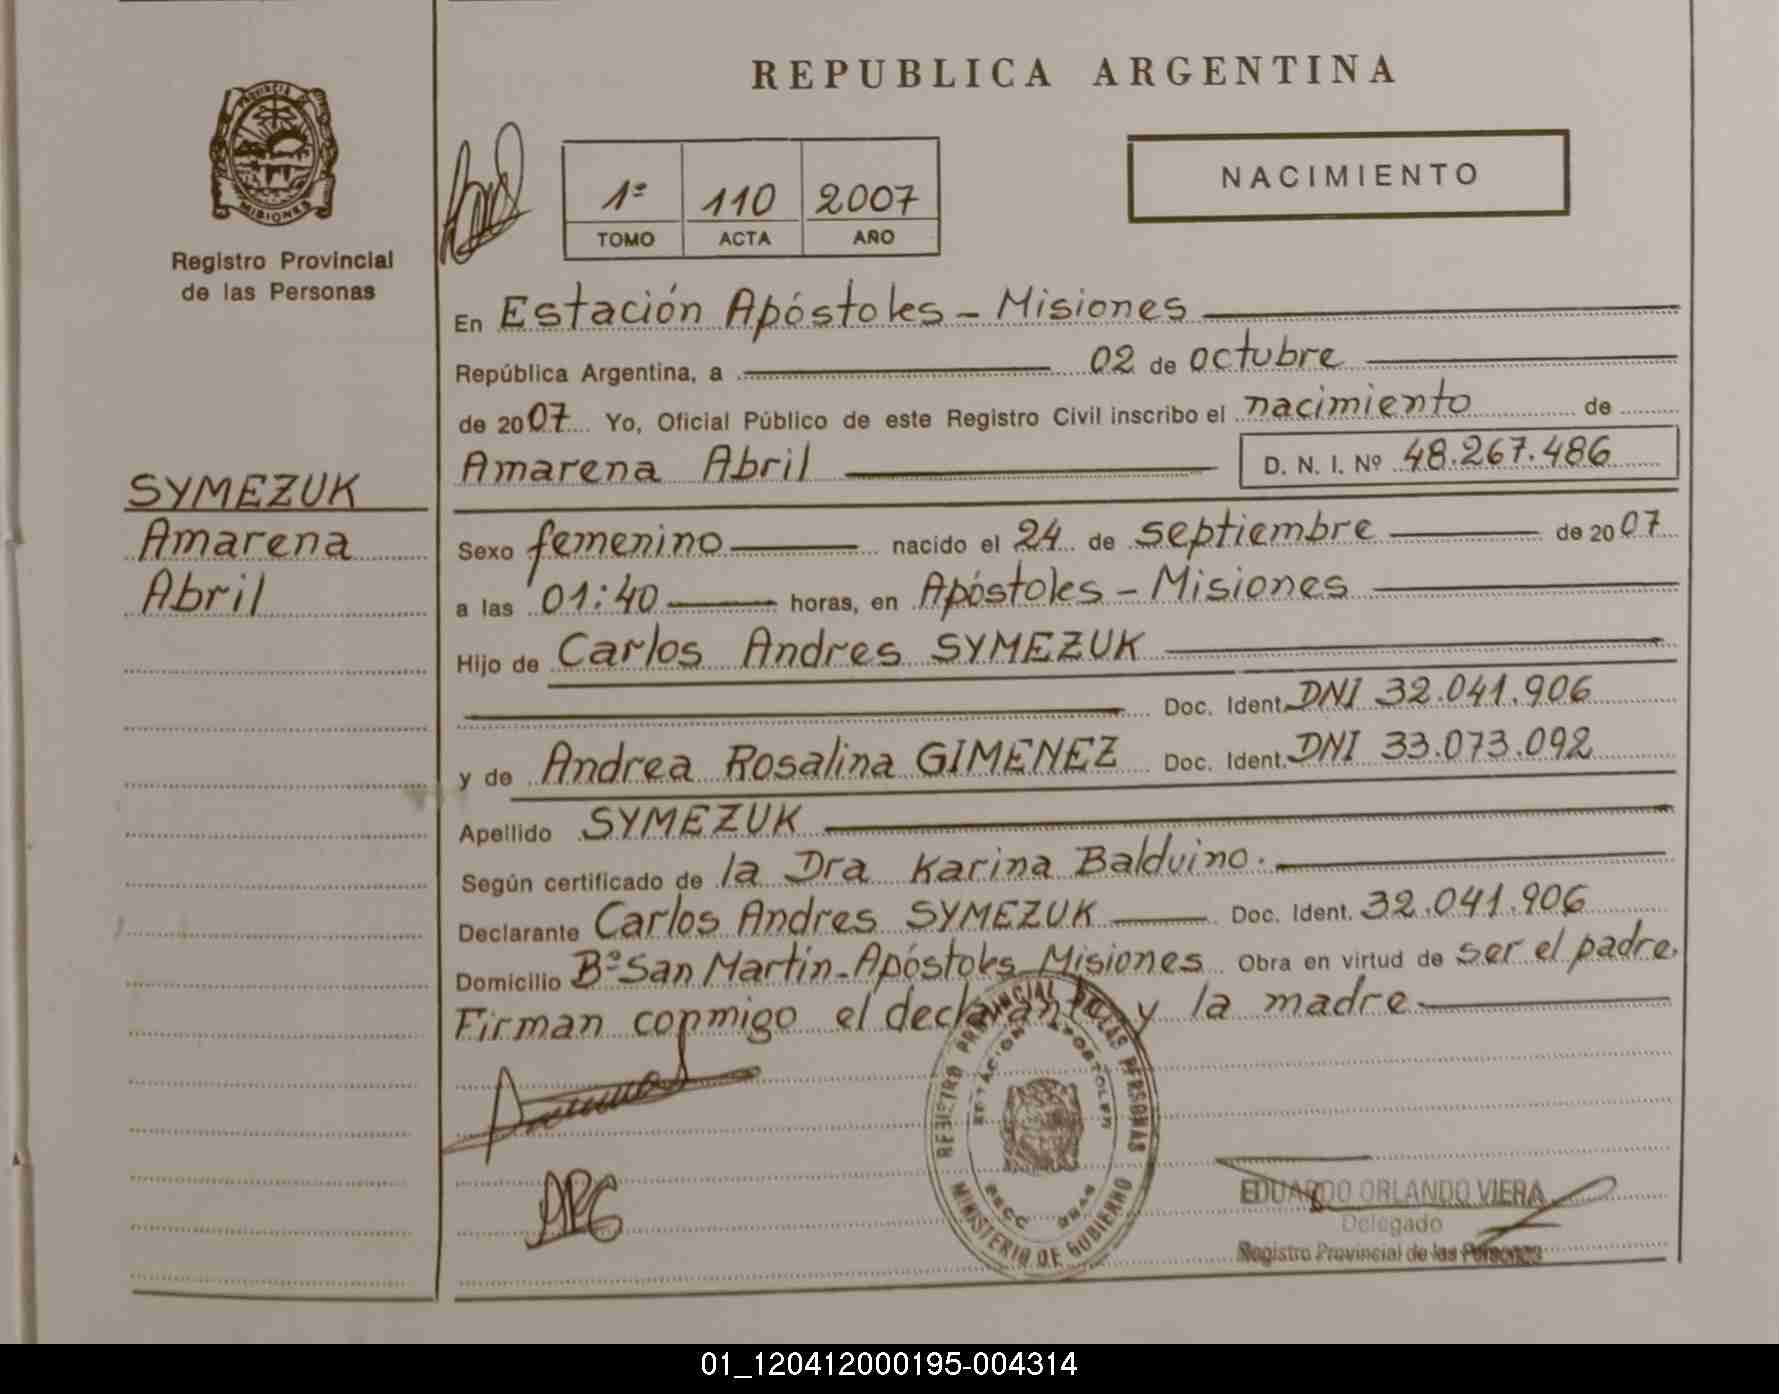 REPUBLICA ARGENTINA
PROVINCIA DE
MISIONES
Registro Provincial
de las Personas
1º 110 2007
TOMO ACTA AÑO
NACIMIENTO
En Estación Apóstoles - Misiones
República Argentina, a 02 de octubre
de 2007 Yo, Oficial Público de este Registro Civil inscribo el nacimiento de
Amarena Abril D. N. I. Nº 48.267.486
SYMEZUK
Amarena
Abril
Sexo femenino nacido el 24 de septiembre de 2007
a las 01:40 horas, en Apóstoles - Misiones
Hijo de Carlos Andres SYMEZUK
Doc. Ident. DNI 32.041.906
y de Andrea Rosalina GIMENEZ Doc. Ident. DNI 33.073.092
Apellido SYMEZUK
Según certificado de la Dra Karina Balduino.
Declarante Carlos Andres SYMEZUK Doc. Ident. 32.041.906
Domicilio Bº San Martín - Apóstoles Misiones Obra en virtud de ser el padre.
Firman conmigo el declarante y la madre
REGISTRO PROVINCIAL DE LAS PERSONAS
ESTACION APOSTOLES
MINISTERIO DE GOBIERNO
ARG
EDUARDO ORLANDO VIERA
Delegado
Registro Provincial de las Personas
01_120412000195-004314